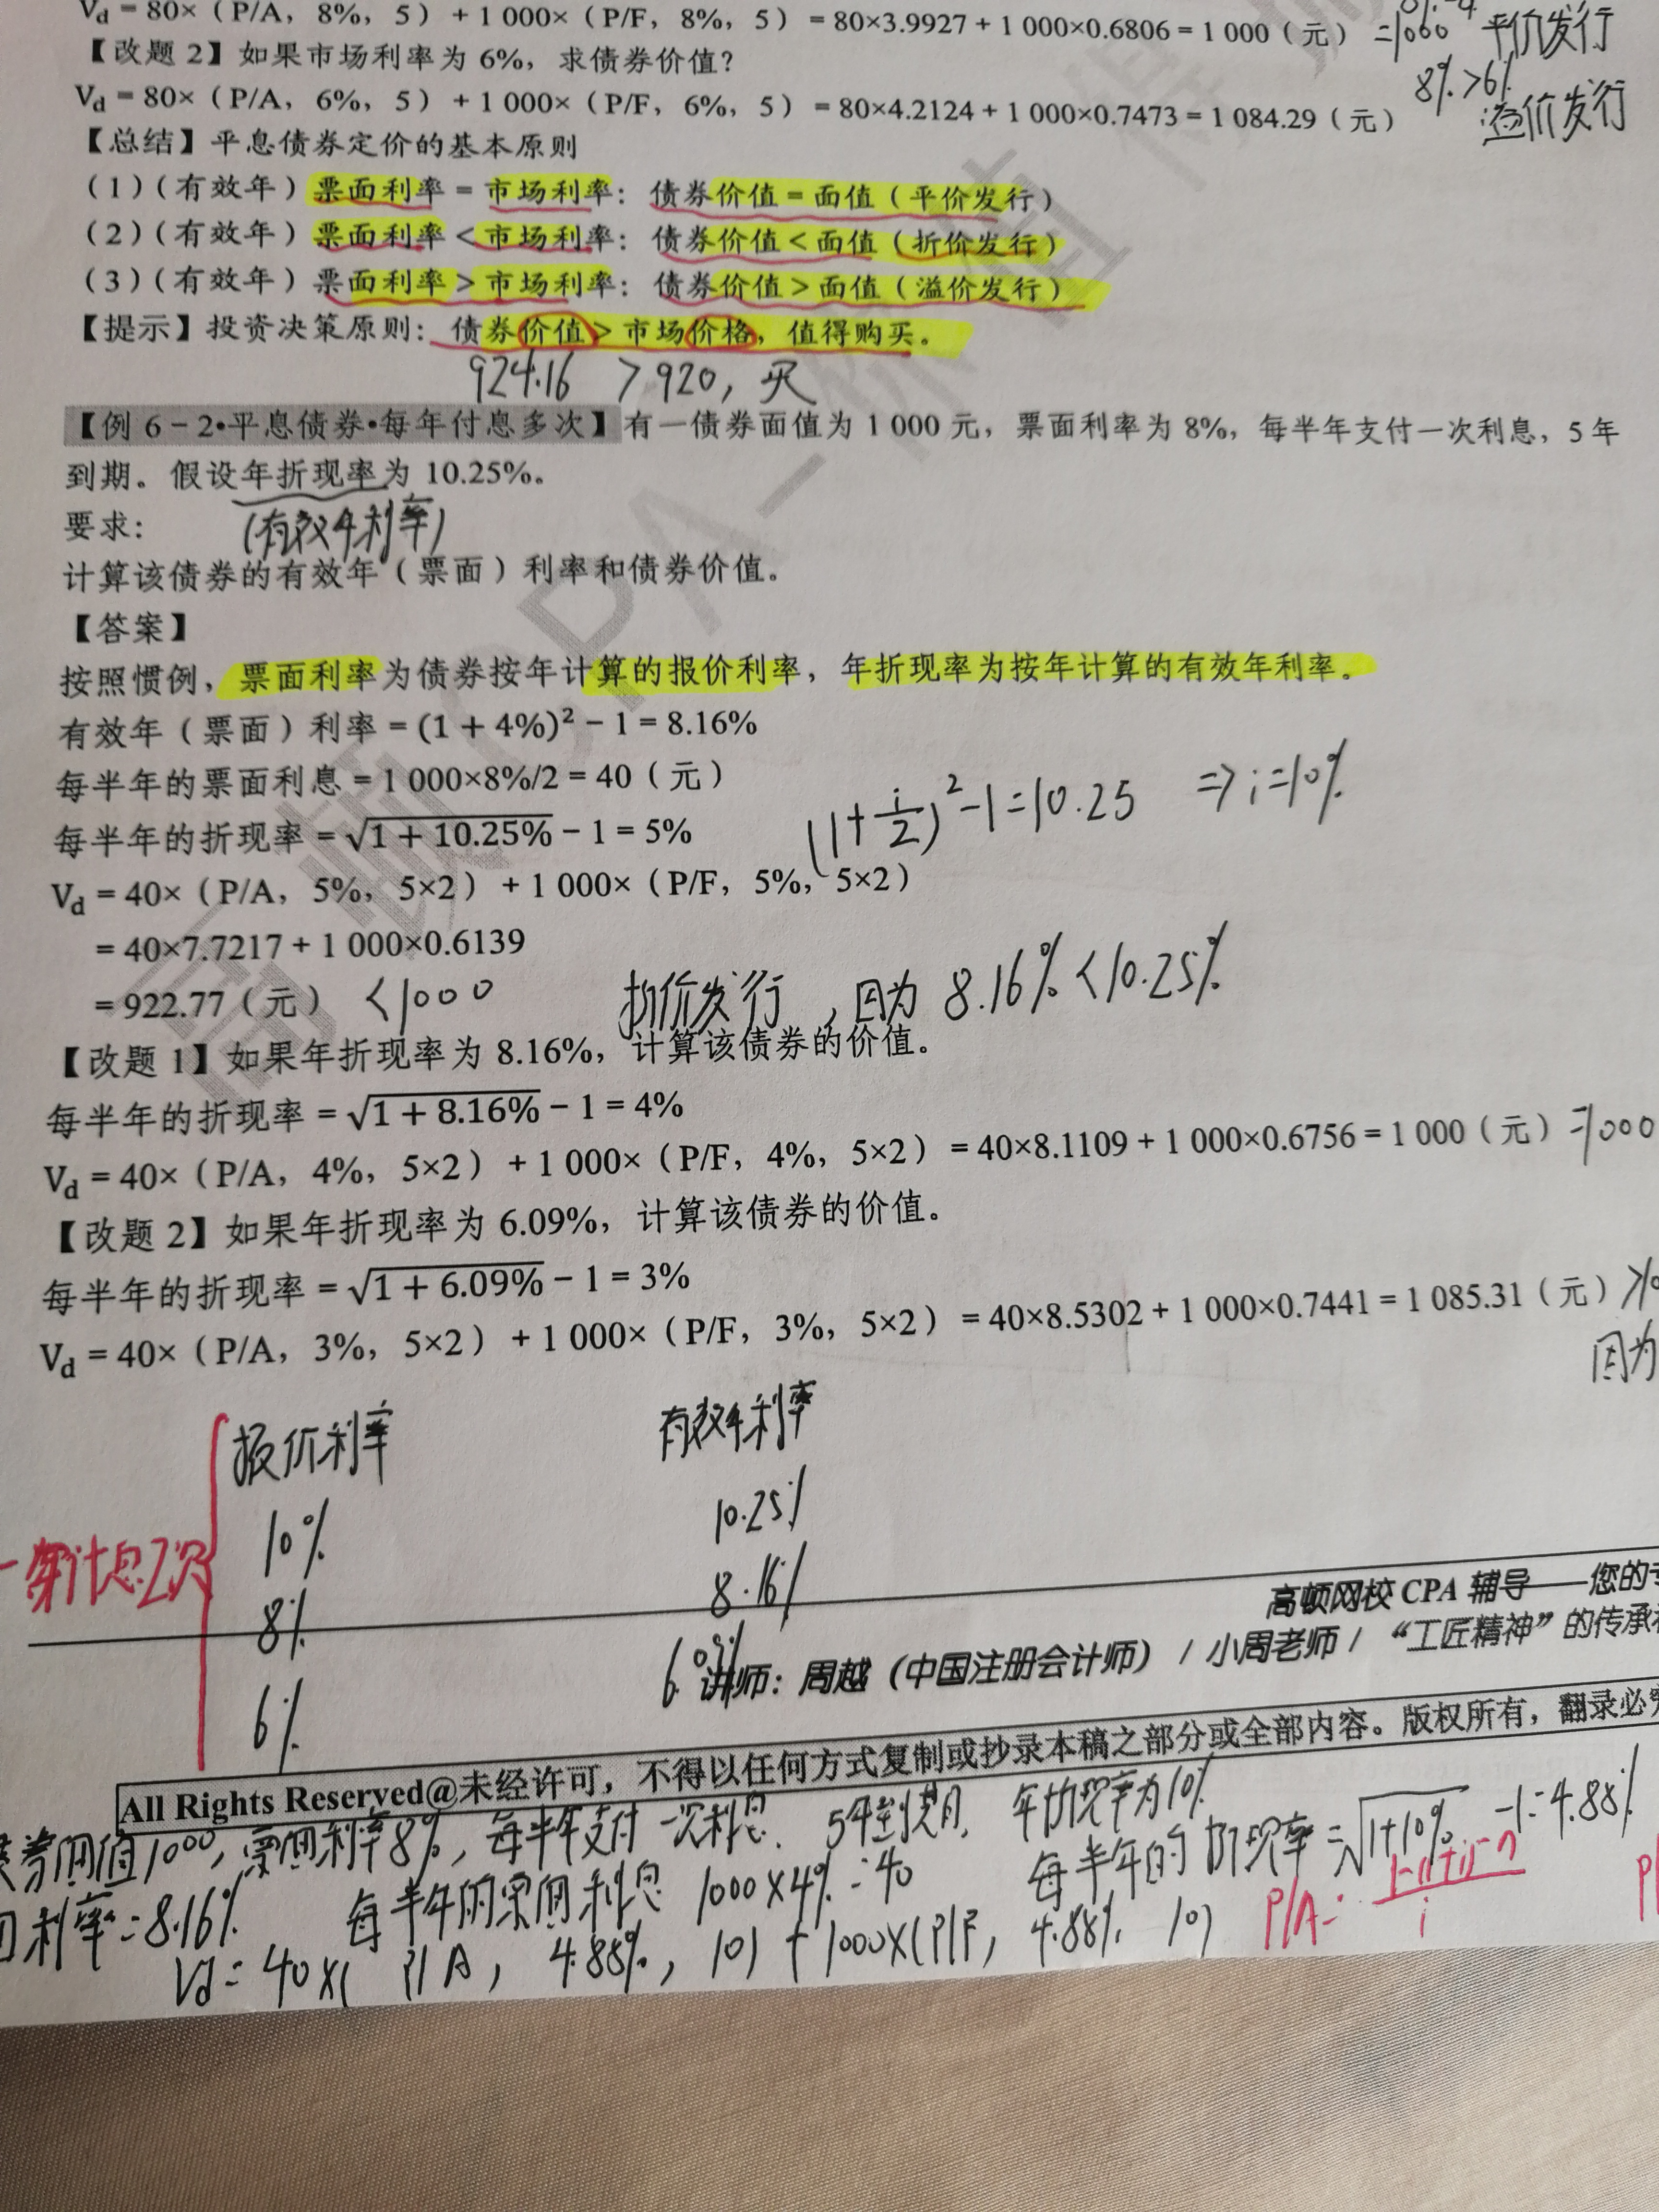 Vd = 80×（P/A，8%，5）+ 1 000×（P/F，8%，5）= 80×3.9927 + 1 000×0.6806 = 1 000（元） =1000 平价发行
【改题 2】如果市场利率为 6%，求债券价值？
8%>6%
Vd = 80×（P/A，6%，5）+ 1 000×（P/F，6%，5）= 80×4.2124 + 1 000×0.7473 = 1 084.29（元） 溢价发行
【总结】平息债券定价的基本原则
（1）（有效年）票面利率 = 市场利率：债券价值 = 面值（平价发行）
（2）（有效年）票面利率 < 市场利率：债券价值 < 面值（折价发行）
（3）（有效年）票面利率 > 市场利率：债券价值 > 面值（溢价发行）
【提示】投资决策原则：债券价值 > 市场价格，值得购买。
924.16 >920，买
【例 6－2•平息债券•每年付息多次】有一债券面值为 1 000 元，票面利率为 8%，每半年支付一次利息，5 年
到期。假设年折现率为 10.25%。
要求：
(有效年利率)
计算该债券的有效年（票面）利率和债券价值。
【答案】
按照惯例，票面利率为债券按年计算的报价利率，年折现率为按年计算的有效年利率。
有效年（票面）利率 = (1 + 4%)² − 1 = 8.16%
每半年的票面利息 = 1 000×8%/2 = 40（元）
每半年的折现率 = √1 + 10.25% − 1 = 5%
(1+i/2)²-1=10.25 ⇒ i=10%
Vd = 40×（P/A，5%，5×2）+ 1 000×（P/F，5%，5×2）
= 40×7.7217 + 1 000×0.6139
= 922.77（元） <1000 折价发行，因为 8.16%<10.25%
【改题 1】如果年折现率为 8.16%，计算该债券的价值。
每半年的折现率 = √1 + 8.16% − 1 = 4%
Vd = 40×（P/A，4%，5×2）+ 1 000×（P/F，4%，5×2）= 40×8.1109 + 1 000×0.6756 = 1 000（元） =1000
【改题 2】如果年折现率为 6.09%，计算该债券的价值。
每半年的折现率 = √1 + 6.09% − 1 = 3%
Vd = 40×（P/A，3%，5×2）+ 1 000×（P/F，3%，5×2）= 40×8.5302 + 1 000×0.7441 = 1 085.31（元） >10
因为
报价利率 有效年利率
10% 10.25%
一年计息2次
8% 8.16%
6% 6.09%
高顿网校 CPA 辅导——您的
讲师：周越（中国注册会计师）/ 小周老师 / “工匠精神”的传承
All Rights Reserved@未经许可，不得以任何方式复制或抄录本稿之部分或全部内容。版权所有，翻录必
券面值1000，票面利率8%，每半年支付一次利息，5年到期，年折现率为10%
利率=8.16% 每半年的票面利息 1000×4%=40 每半年的折现率=√1+10% -1=4.88%
Vd=40×( P/A，4.88%，10)+1000×(P/F，4.88% 10)
P/A= 1-(1+i)-n / i